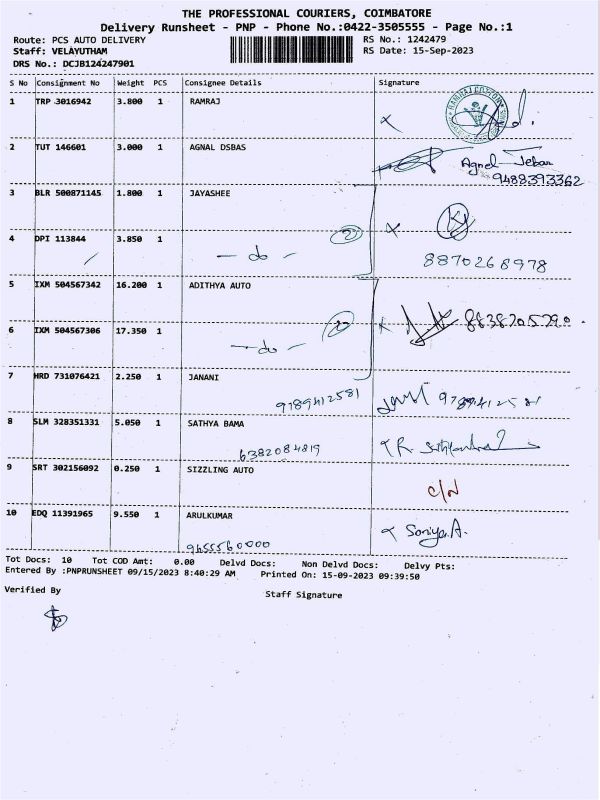 THE PROFESSIONAL COURIERS, COIMBATORE
Delivery Runsheet - PNP - Phone No.:0422-3505555 - Page No.:1
Route: PCS AUTO DELIVERY RS No.: 1242479
Staff: VELAYUTHAM RS Date: 15-Sep-2023
DRS No.: DCJB124247901
S No Consignment No Weight PCS Consignee Details Signature
1 TRP 3016942 3.800 1 RAMRAJ
2 TUT 146601 3.000 1 AGNAL DSBAS Agnel Jebar
9488393362
3 BLR 500871145 1.800 1 JAYASHEE
4 DPI 113844 3.850 1 - do - 2 8870268978
5 IXM 504567342 16.200 1 ADITHYA AUTO 8838705790
6 IXM 504567306 17.350 1 - do - 2
7 HRD 731076421 2.250 1 JANANI
9789412581 9789412581
8 SLM 328351331 5.050 1 SATHYA BAMA
6382084819
9 SRT 302156092 0.250 1 SIZZLING AUTO
C/N
10 EDQ 11391965 9.550 1 ARULKUMAR Soniya.A.
9655560000
Tot Docs: 10 Tot COD Amt: 0.00 Delvd Docs: Non Delvd Docs: Delvy Pts:
Entered By :PNPRUNSHEET 09/15/2023 8:40:29 AM Printed On: 15-09-2023 09:39:50
Verified By Staff Signature